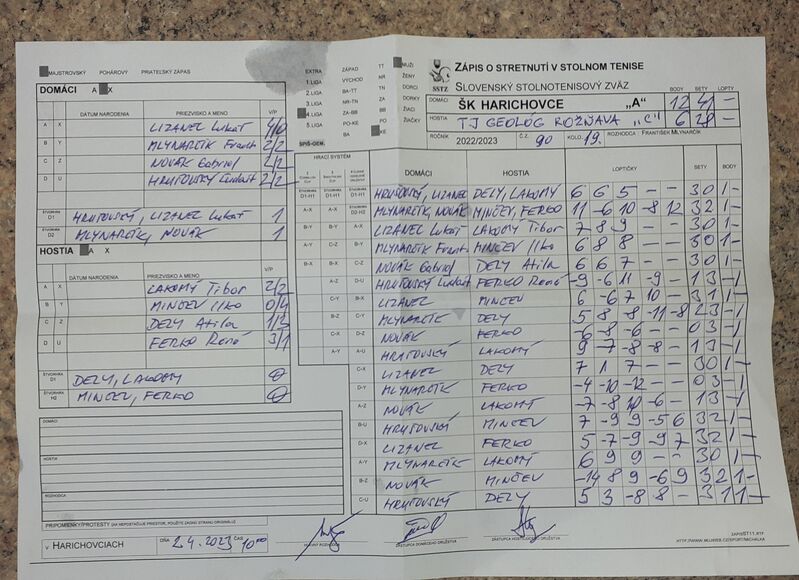 MAJSTROVSKÝ POHÁROVÝ PRIATEĽSKÝ ZÁPAS
EXTRA ZÁPAD TT MUŽI
1.LIGA VÝCHOD NR ŽENY
2.LIGA BA-TT TN DORCI
3.LIGA NR-TN ZA DORKY
4.LIGA ZA-BB BB ŽIACI
5.LIGA PO-KE PO ŽIAČKY
BA KE
SPIŠ-GEM.
SSTZ
ZÁPIS O STRETNUTÍ V STOLNOM TENISE
SLOVENSKÝ STOLNOTENISOVÝ ZVÄZ
BODY SETY LOPTY
DOMÁCI ŠK HARICHOVCE „A" 12 41 –
HOSTIA TJ GEOLÓG ROŽŇAVA "C" 6 28 –
ROČNÍK 2022/2023 Č.Z. 90 KOLO 19. ROZHODCA FRANTIŠEK MLYNARČÍK
DOMÁCI A X
DÁTUM NARODENIA PRIEZVISKO A MENO V/P
A X LIZANEC Lukáš 4/0
B Y MLYNARČÍK Frant 2/2
C Z NOVÁK Gabriel 2/2
D U HRUŠOVSKÝ 2/2
ŠTVORHRA D1 HRUŠOVSKÝ, LIZANEC Lukáš 1
ŠTVORHRA D2 MLYNARČÍK, NOVÁK 1
HOSTIA A X
DÁTUM NARODENIA PRIEZVISKO A MENO V/P
A X LAKOMÝ Tibor 2/2
B Y MINČEV Ilko 0/4
C Z DELY Atila 1/3
D U FERKO René 3/1
ŠTVORHRA H1 DELY, LAKOMÝ 0
ŠTVORHRA H2 MINČEV, FERKO 0
DOMÁCI
HOSTIA
ROZHODCA
PRIPOMIENKY/PROTESTY (AK NEPOSTAČUJE PRIESTOR, POUŽITE ZADNÚ STRANU ORIGINÁLU)
V HARICHOVCIACH DŇA 2.4.2023 ČAS 10⁰⁰
HRACÍ SYSTÉM
DOMÁCI HOSTIA LOPTIČKY SETY BODY
HRUŠOVSKÝ, LIZANEC DELY, LAKOMÝ 6 6 5 – – 3 0 1 –
MLYNARČÍK, NOVÁK MINČEV, FERKO 11 -6 10 -8 12 3 2 1 –
LIZANEC Lukáš LAKOMÝ Tibor 7 8 9 – – 3 0 1 –
MLYNARČÍK Frant MINČEV Ilko 6 8 8 – – 3 0 1 –
NOVÁK Gabriel DELY Atila 6 6 7 – – 3 0 1 –
HRUŠOVSKÝ FERKO René -9 -6 11 -9 – 1 3 – 1
LIZANEC MINČEV 6 -6 7 10 – 3 1 1 –
MLYNARČÍK DELY 5 8 -8 -11 -8 2 3 – 1
NOVÁK FERKO -6 -8 -6 – – 0 3 – 1
HRUŠOVSKÝ LAKOMÝ 9 -7 -8 -8 – 1 3 – 1
LIZANEC DELY 7 1 7 – – 3 0 1 –
MLYNARČÍK FERKO -4 -10 -12 – – 0 3 – 1
NOVÁK LAKOMÝ -7 -8 10 -6 – 1 3 – 1
HRUŠOVSKÝ MINČEV 7 -9 9 -5 6 3 2 1 –
LIZANEC FERKO 5 -7 -9 9 7 3 2 1 –
MLYNARČÍK LAKOMÝ 6 9 9 – – 3 0 1 –
NOVÁK MINČEV -14 8 9 -6 9 3 2 1 –
HRUŠOVSKÝ DELY 5 3 -8 8 – 3 1 1 –
HLAVNÝ ROZHODCA
ZÁSTUPCA DOMÁCEHO DRUŽSTVA
ZÁSTUPCA HOSŤUJÚCEHO DRUŽSTVA
ZAPISST11.RTF